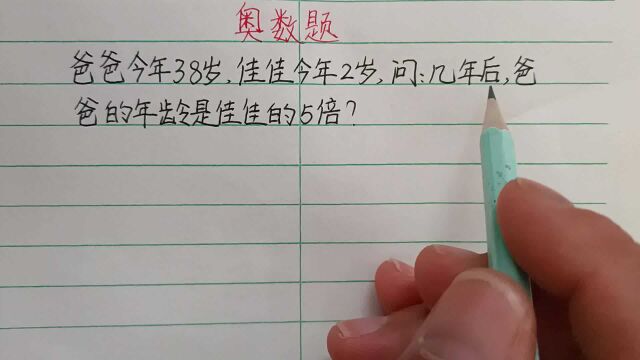 奥数题
爸爸今年38岁,佳佳今年2岁,问:几年后,爸
爸的年龄是佳佳的5倍?